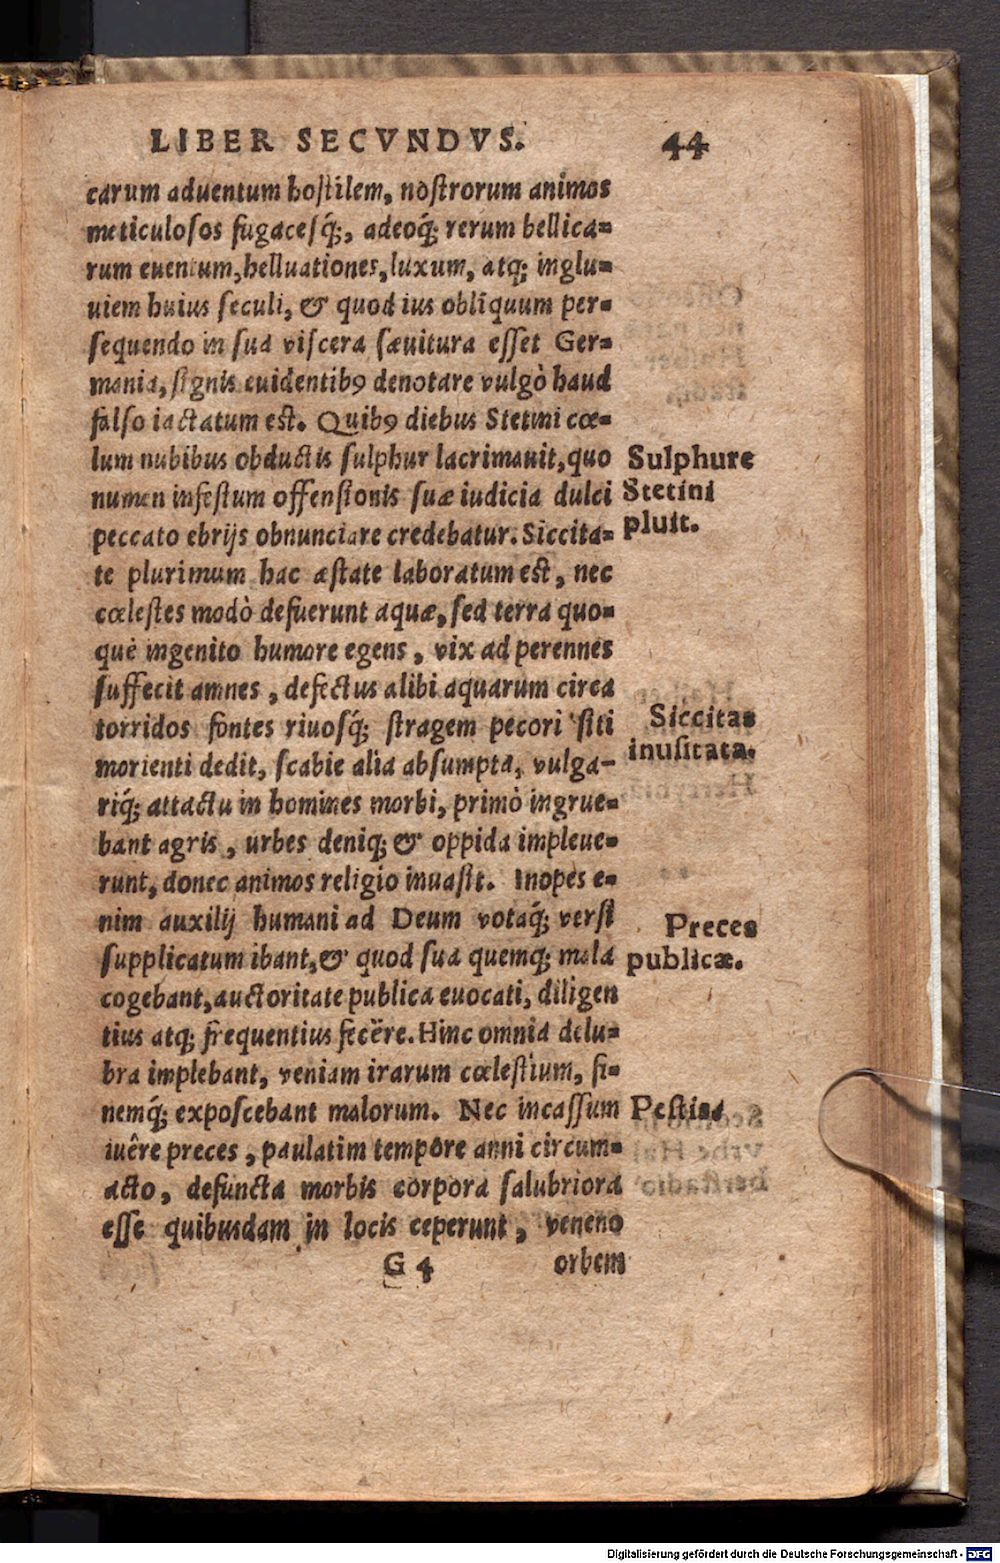 LIBER SECVNDVS. 44
carum aduentum hoſtilem, noſtrorum animos
meticuloſos fugaceſq́;, adeoq́; rerum bellica=
rum euentum, helluationes, luxum, atq; inglu=
uiem huius ſeculi, & quod ius oblîquum per=
ſequendo in ſua viſcera ſæuitura eſſet Ger=
mania, ſignis euidentibꝰ denotare vulgò haud
falſo iactatum est. Quibꝰ diebus Stetini cœ=
lum nubibus obductis ſulphur lacrimauit, quo
numen infeſtum offenſionis ſuæ iudicia dulci
peccato ebrijs obnunciare credebatur. Siccita=
te plurimum hac æſtate laboratum est, nec
cœleſtes modò defuerunt aquæ, ſed terra quo=
què ingenito humore egens, vix ad perennes
ſuffecit amnes, defectus alibi aquarum circa
torridos fontes riuoſq́; ſtragem pecori ſiti
morienti dedit, ſcabie alia abſumpta, vulga-
riq́; attactu in homines morbi, primò ingrue=
bant agris, urbes deniq; & oppida impleue=
runt, donec animos religio inuaſit. Inopes e=
nim auxilij humani ad Deum votaq́; verſi
ſupplicatum ibant, & quod ſua quemq; mala
cogebant, auctoritate publica euocati, diligen
tius atq; frequentius fecêre. Hinc omnia delu=
bra implebant, veniam irarum cœleſtium, fi=
nemq́; expoſcebant malorum. Nec incaſſum
iuêre preces, paulatim tempore anni circum=
acto, defuncta morbis corpora ſalubriora
eſſe quibusdam in locis ceperunt, veneno
G 4 orbem
Sulphure
Stetini
pluit.
Siccitas
inuſitata.
Preces
publicæ.
Peſtis.
Digitalisierung gefördert durch die Deutsche Forschungsgemeinschaft - DFG